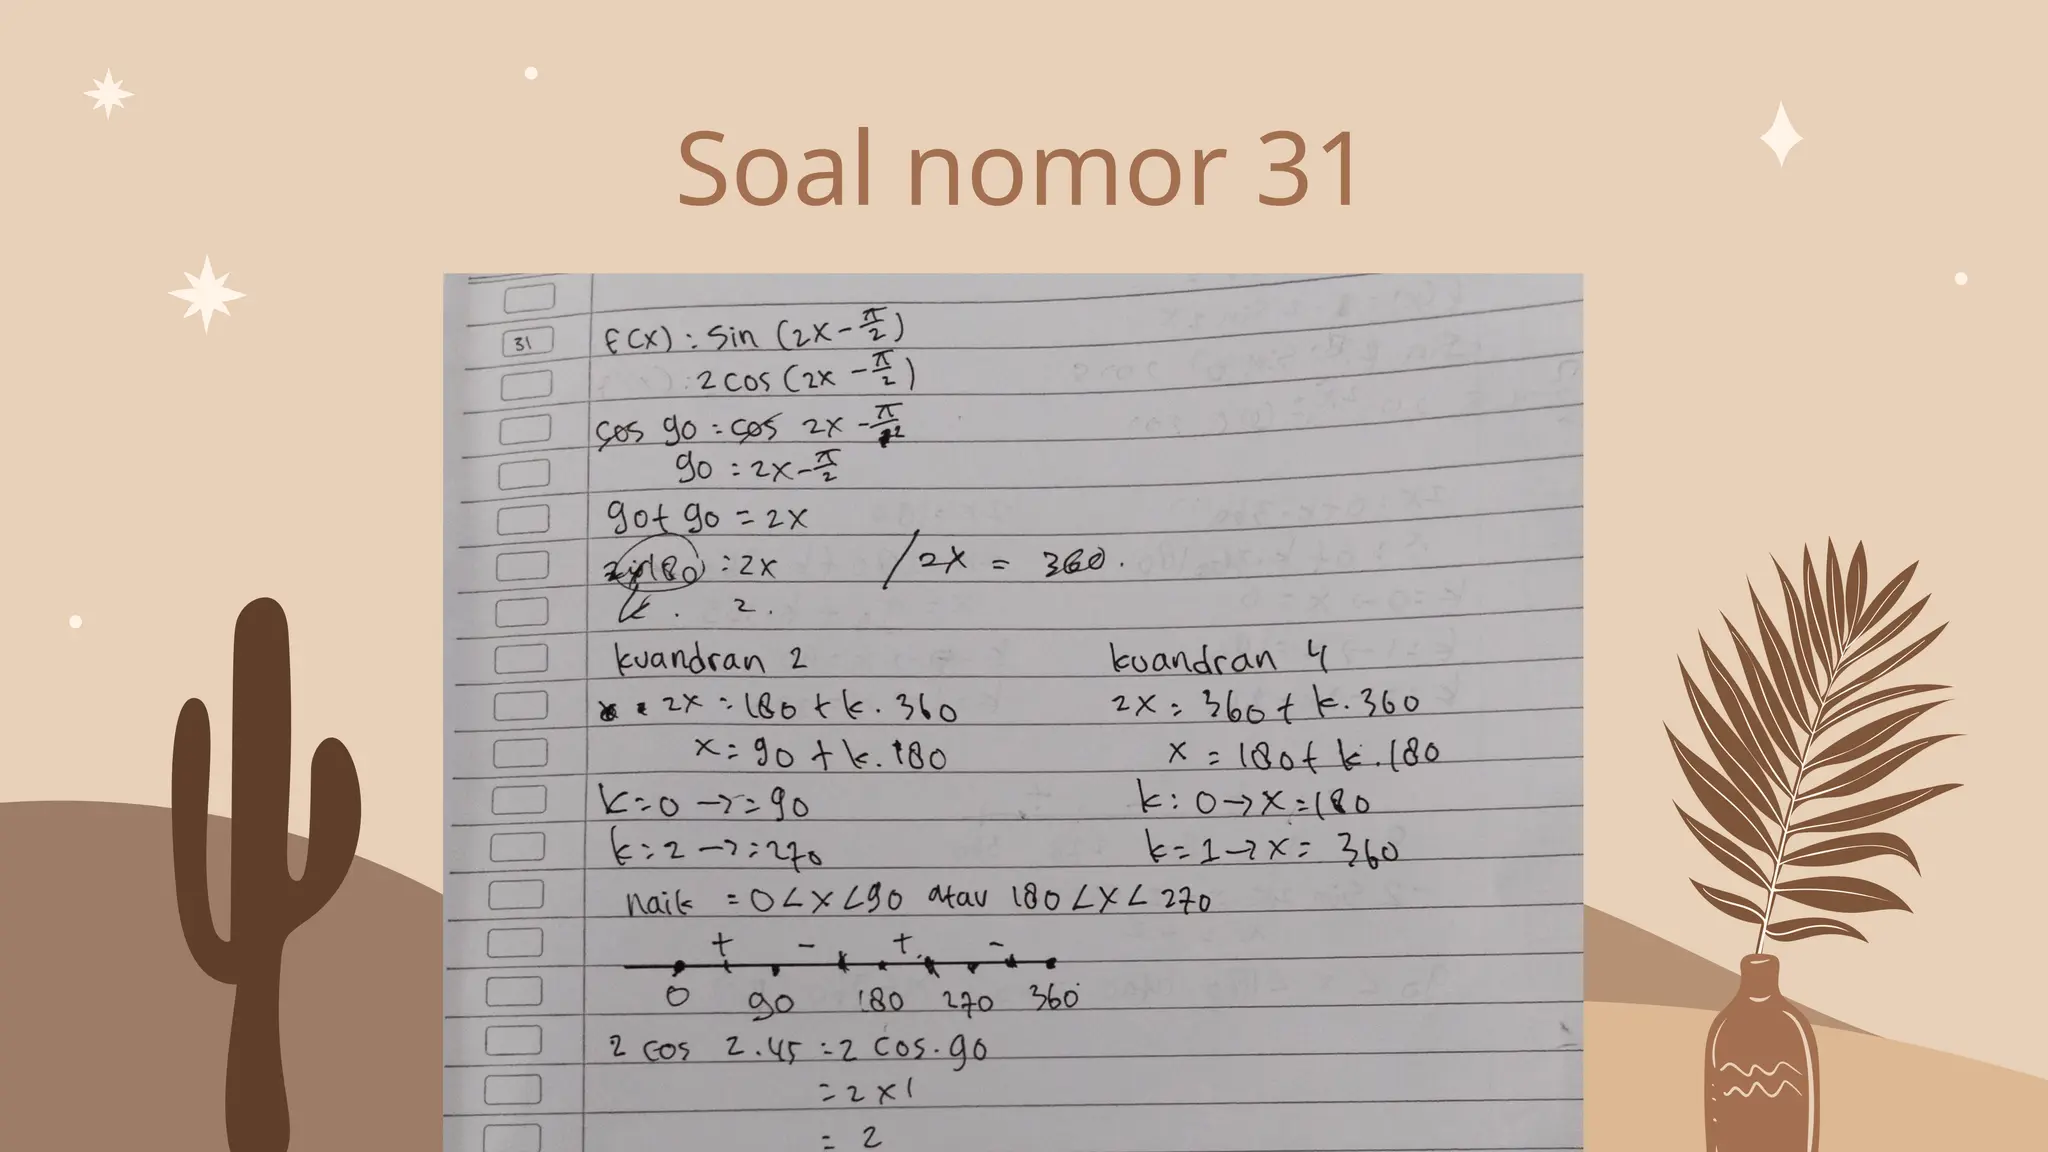 Soal nomor 31
31 f(x) : sin (2x - π/2)
: 2 cos (2x - π/2)
cos 90 = cos 2x - π/2
90 : 2x - π/2
90 + 90 = 2x
180 : 2x / 2x = 360.
k . 2 .
kuandran 2 kuandran 4
2x = 180 + k . 360 2x = 360 + k . 360
x = 90 + k . 180 x = 180 + k . 180
k = 0 → = 90 k : 0 → x = 180
k : 2 → = 270 k = 1 → x = 360
naik = 0 < x < 90 atau 180 < x < 270
+ - + -
0 90 180 270 360
2 cos 2 . 45 = 2 cos . 90
= 2 x 1
= 2